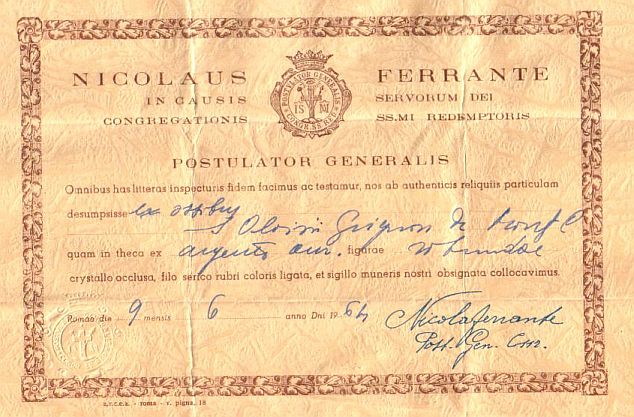 NICOLAUS FERRANTE
IN CAUSIS SERVORUM DEI
CONGREGATIONIS SS.MI REDEMPTORIS
POSTULATOR GENERALIS
Omnibus has litteras inspecturis fidem facimus ac testamur, nos ab authenticis reliquiis particulam
desumpsisse ex ossibus
S
quam in theca ex argento aur. figurae rotundae
crystallo occlusa, filo serico rubri coloris ligata, et sigillo muneris nostri obsignata collocavimus.
Romae die 9 mensis 6 anno Dni 1964
Nicola Ferrante
Post. Gen.
a.r.c.e.s. - roma - v. pigna, 18